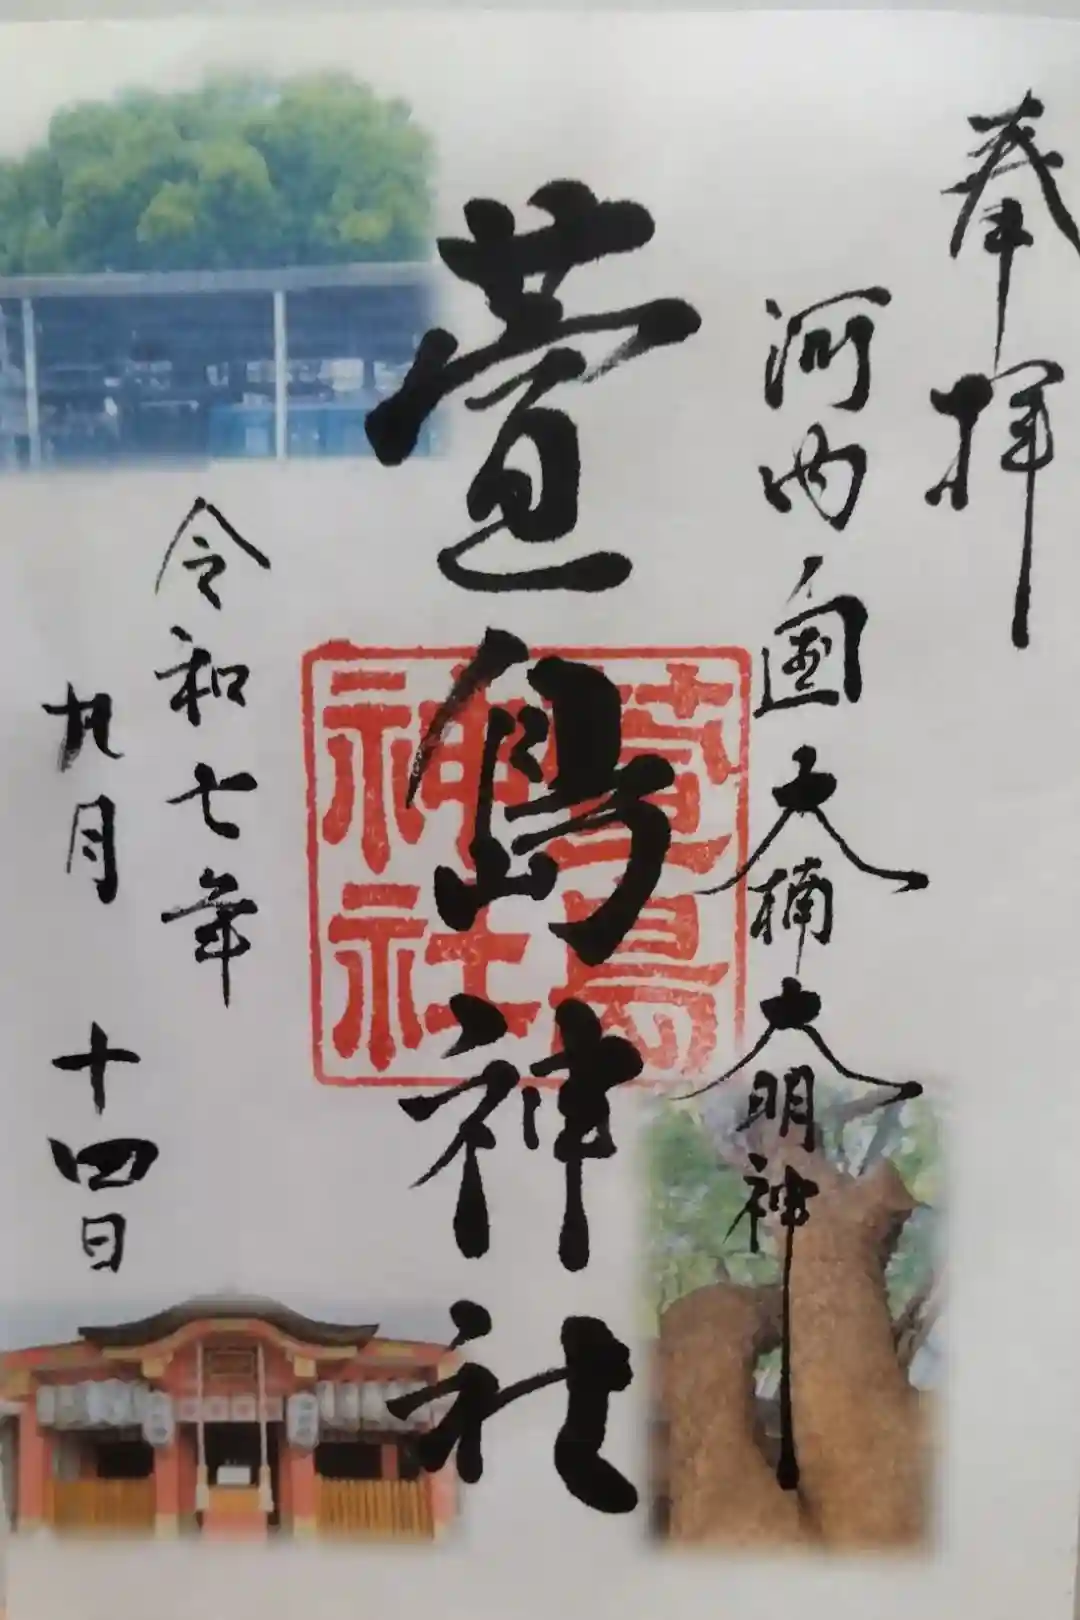 奉拝
河内國大楠大明神
萱島神社
萱島神社
令和七年
九月十四日